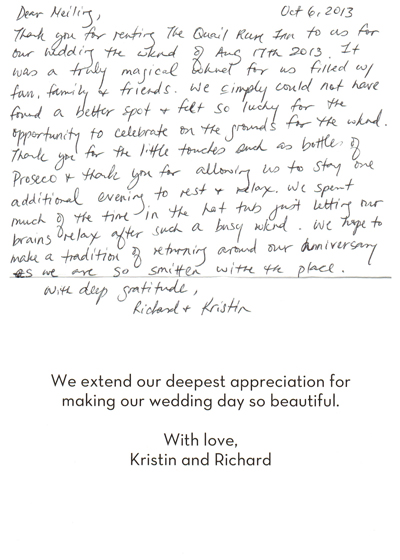 Dear Meiling, Oct 6, 2013
Thank you for renting The Quail Run Inn to us for
our wedding the wknd of Aug 17th 2013. It
was a truly magical wknd for us filled w/
fun, family & friends. We simply could not have
found a better spot & felt so lucky for the
opportunity to celebrate on the grounds for the wknd.
Thank you for the little touches such as bottles of
Proseco & thank you for allowing us to stay one
additional evening to rest & relax. We spent
much of the time in the hot tub just letting our
brains relax after such a busy wknd. We hope to
make a tradition of returning around our Anniversary
as we are so smitten withe the place.
With deep gratitude,
Richard & Kristin
We extend our deepest appreciation for
making our wedding day so beautiful.
With love,
Kristin and Richard